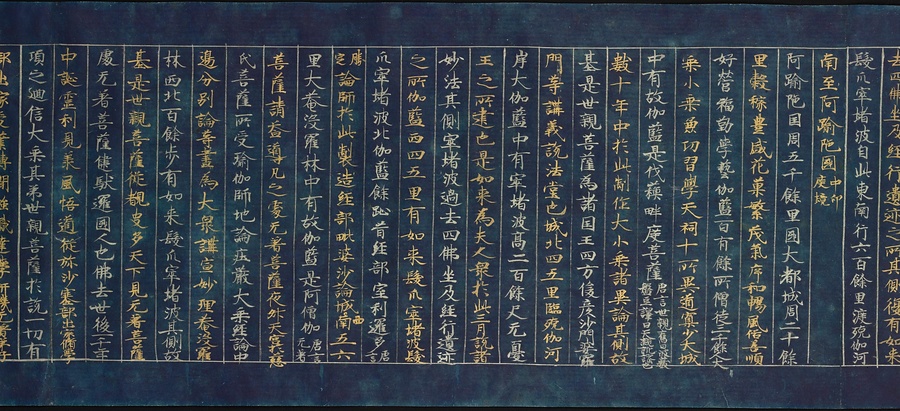 去四佛坐及經行遺迹之所其側復有如來
髮爪窣堵波自此東南行六百餘里渡殑伽河
南至阿踰陁國中印度境
阿踰陁國周五千餘里國大都城周二十餘
里穀稼豊盛花菓繁茂氣序和暢風俗善順
好營福勤學藝伽藍百有餘所僧徒三千餘人大
乘小乘兼功習學天祠十所異道寡少大城
中有故伽藍是伐蘓畔度菩薩唐言世親舊曰婆藪盤豆譯曰天親訛謬也
數十年中於此制作大小乘諸異論其側故
基是世親菩薩為諸國王四方俊彦沙門婆羅
門等講義說法堂也城北四五里臨殑伽河
岸大伽藍中有窣堵波高二百餘尺无憂
王之所建也是如來為天人衆於此三月說諸
妙法其側窣堵波過去四佛坐及經行遺迹
之所伽藍西四五里有如來髮爪窣堵波髮
爪窣堵波北伽藍餘趾昔經部室利邏多唐言
勝受論師於此製造經部毗婆沙論城西南五六
里大菴沒羅林中有故伽藍是阿僧伽唐言无著
菩薩請益導凡之處无著菩薩夜外天宮於慈
氏菩薩所受瑜伽師地論莊嚴大乘經論中
邊分別論等晝為大衆講宣妙理菴沒羅
林西北百餘步有如來髮爪窣堵波其側故
基是世親菩薩從覩史多天下見无著菩薩
處无著菩薩健馱邏國人也佛去世後一千年
中誕靈利見承風悟道從弥沙塞部出家脩學
頃之迴信大乘其弟世親菩薩於說一切有